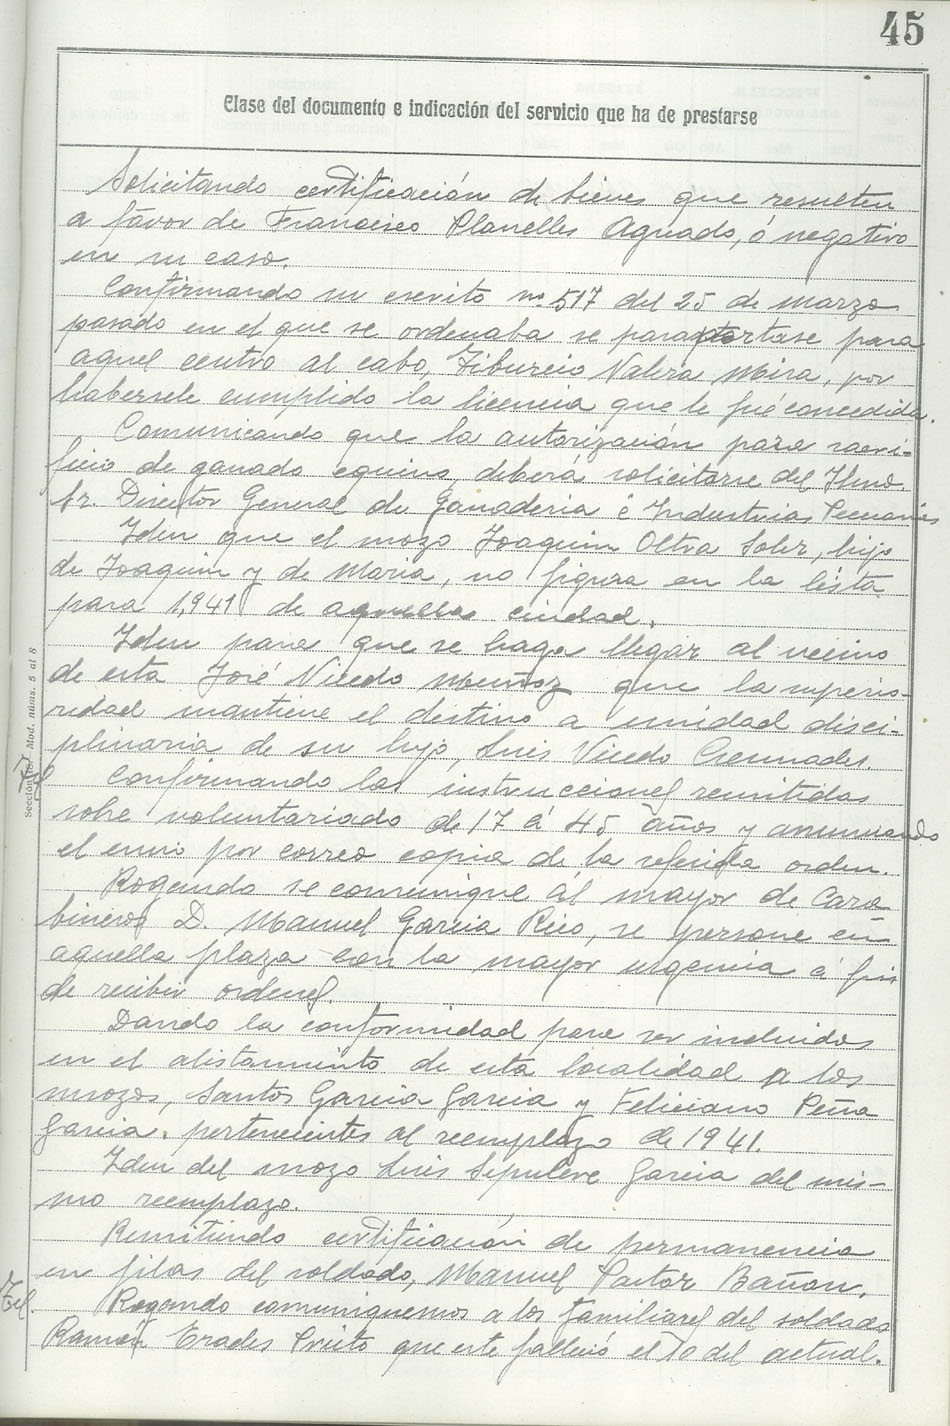 45
Clase del documento e indicación del servicio que ha de prestarse
Solicitando certificación de bienes que resulten
a favor de Francisco Planelles Aguado, ó negativo
en su caso.
Confirmando su escrito nº 517 del 25 de marzo
pasado en el que se ordenaba se para portase para
aquel centro al cabo, Tiburcio Valera Mira, por
habersele cumplido la licencia que le fué concedida.
Comunicando que la autorización para sacri-
ficio de ganado equino, deberá solicitarse del Ilmo.
Sr. Director General de Ganaderia é Industrias Pecuarias
Idem que el mozo Joaquin Oltra Soler, hijo
de Joaquin y de Maria, no figura en la lista
para 1,941 de aquella ciudad.
Idem para que se haga llegar al vecino
de esta José Vicedo Muñoz que la superio-
ridad mantiene el destino a unidad disci-
plinaria de su hijo, Luis Vicedo
Sección Mod. núms. 5 al 8
Tel
Confirmando las instrucciones remitidas
sobre voluntariado de 17 á 45 años y anunciando
el envio por correo copia de la referida orden.
Rogando se comunique al mayor de Cara
bineros D. Manuel Garcia Rico, se persone en
aquella plaza con la mayor urgencia á fin
de recibir ordenes.
Dando la conformidad para ser incluidos
en el alistamiento de esta localidad a los
mozos, Santos Garcia Garcia y Feliciano Peña
Garcia, pertenecientes al reemplazo de 1941.
Idem del mozo Luis Sepulcre Garcia del mis-
mo reemplazo.
Remitiendo certificación de permanencia
en filas del soldado, Manuel Pastor Bañon.
Tel.
Rogando comuniquemos a los familiares del soldado
Ramón Erades Prieto que este falleció el 10 del actual.